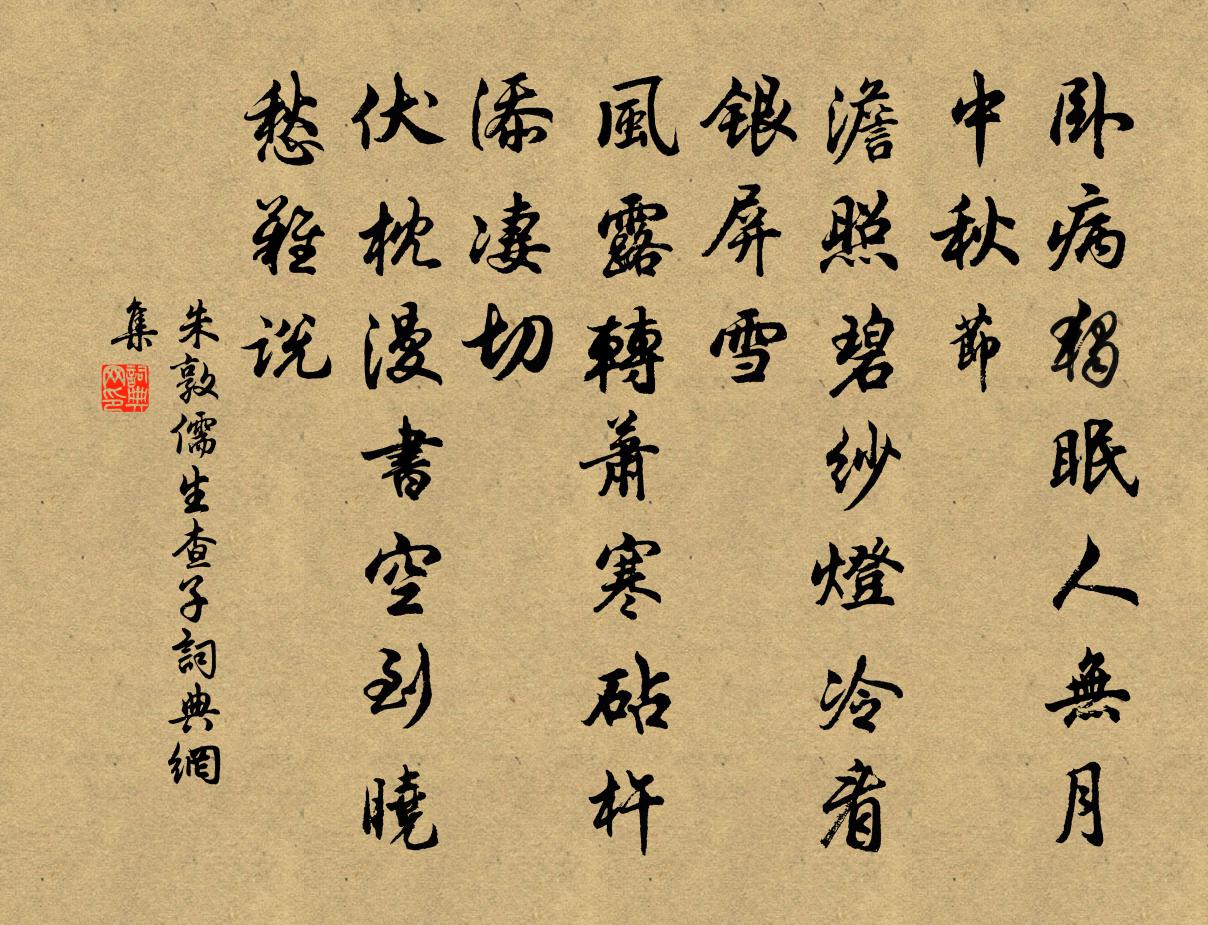 卧病獨眠人無月
中秋節
澹照碧紗燈冷看
銀屏雪
風露轉蕭寒砧杵
添凄切
伏枕漫書空到曉
愁難説
朱敦儒生查子詞典網
集
詞典网印